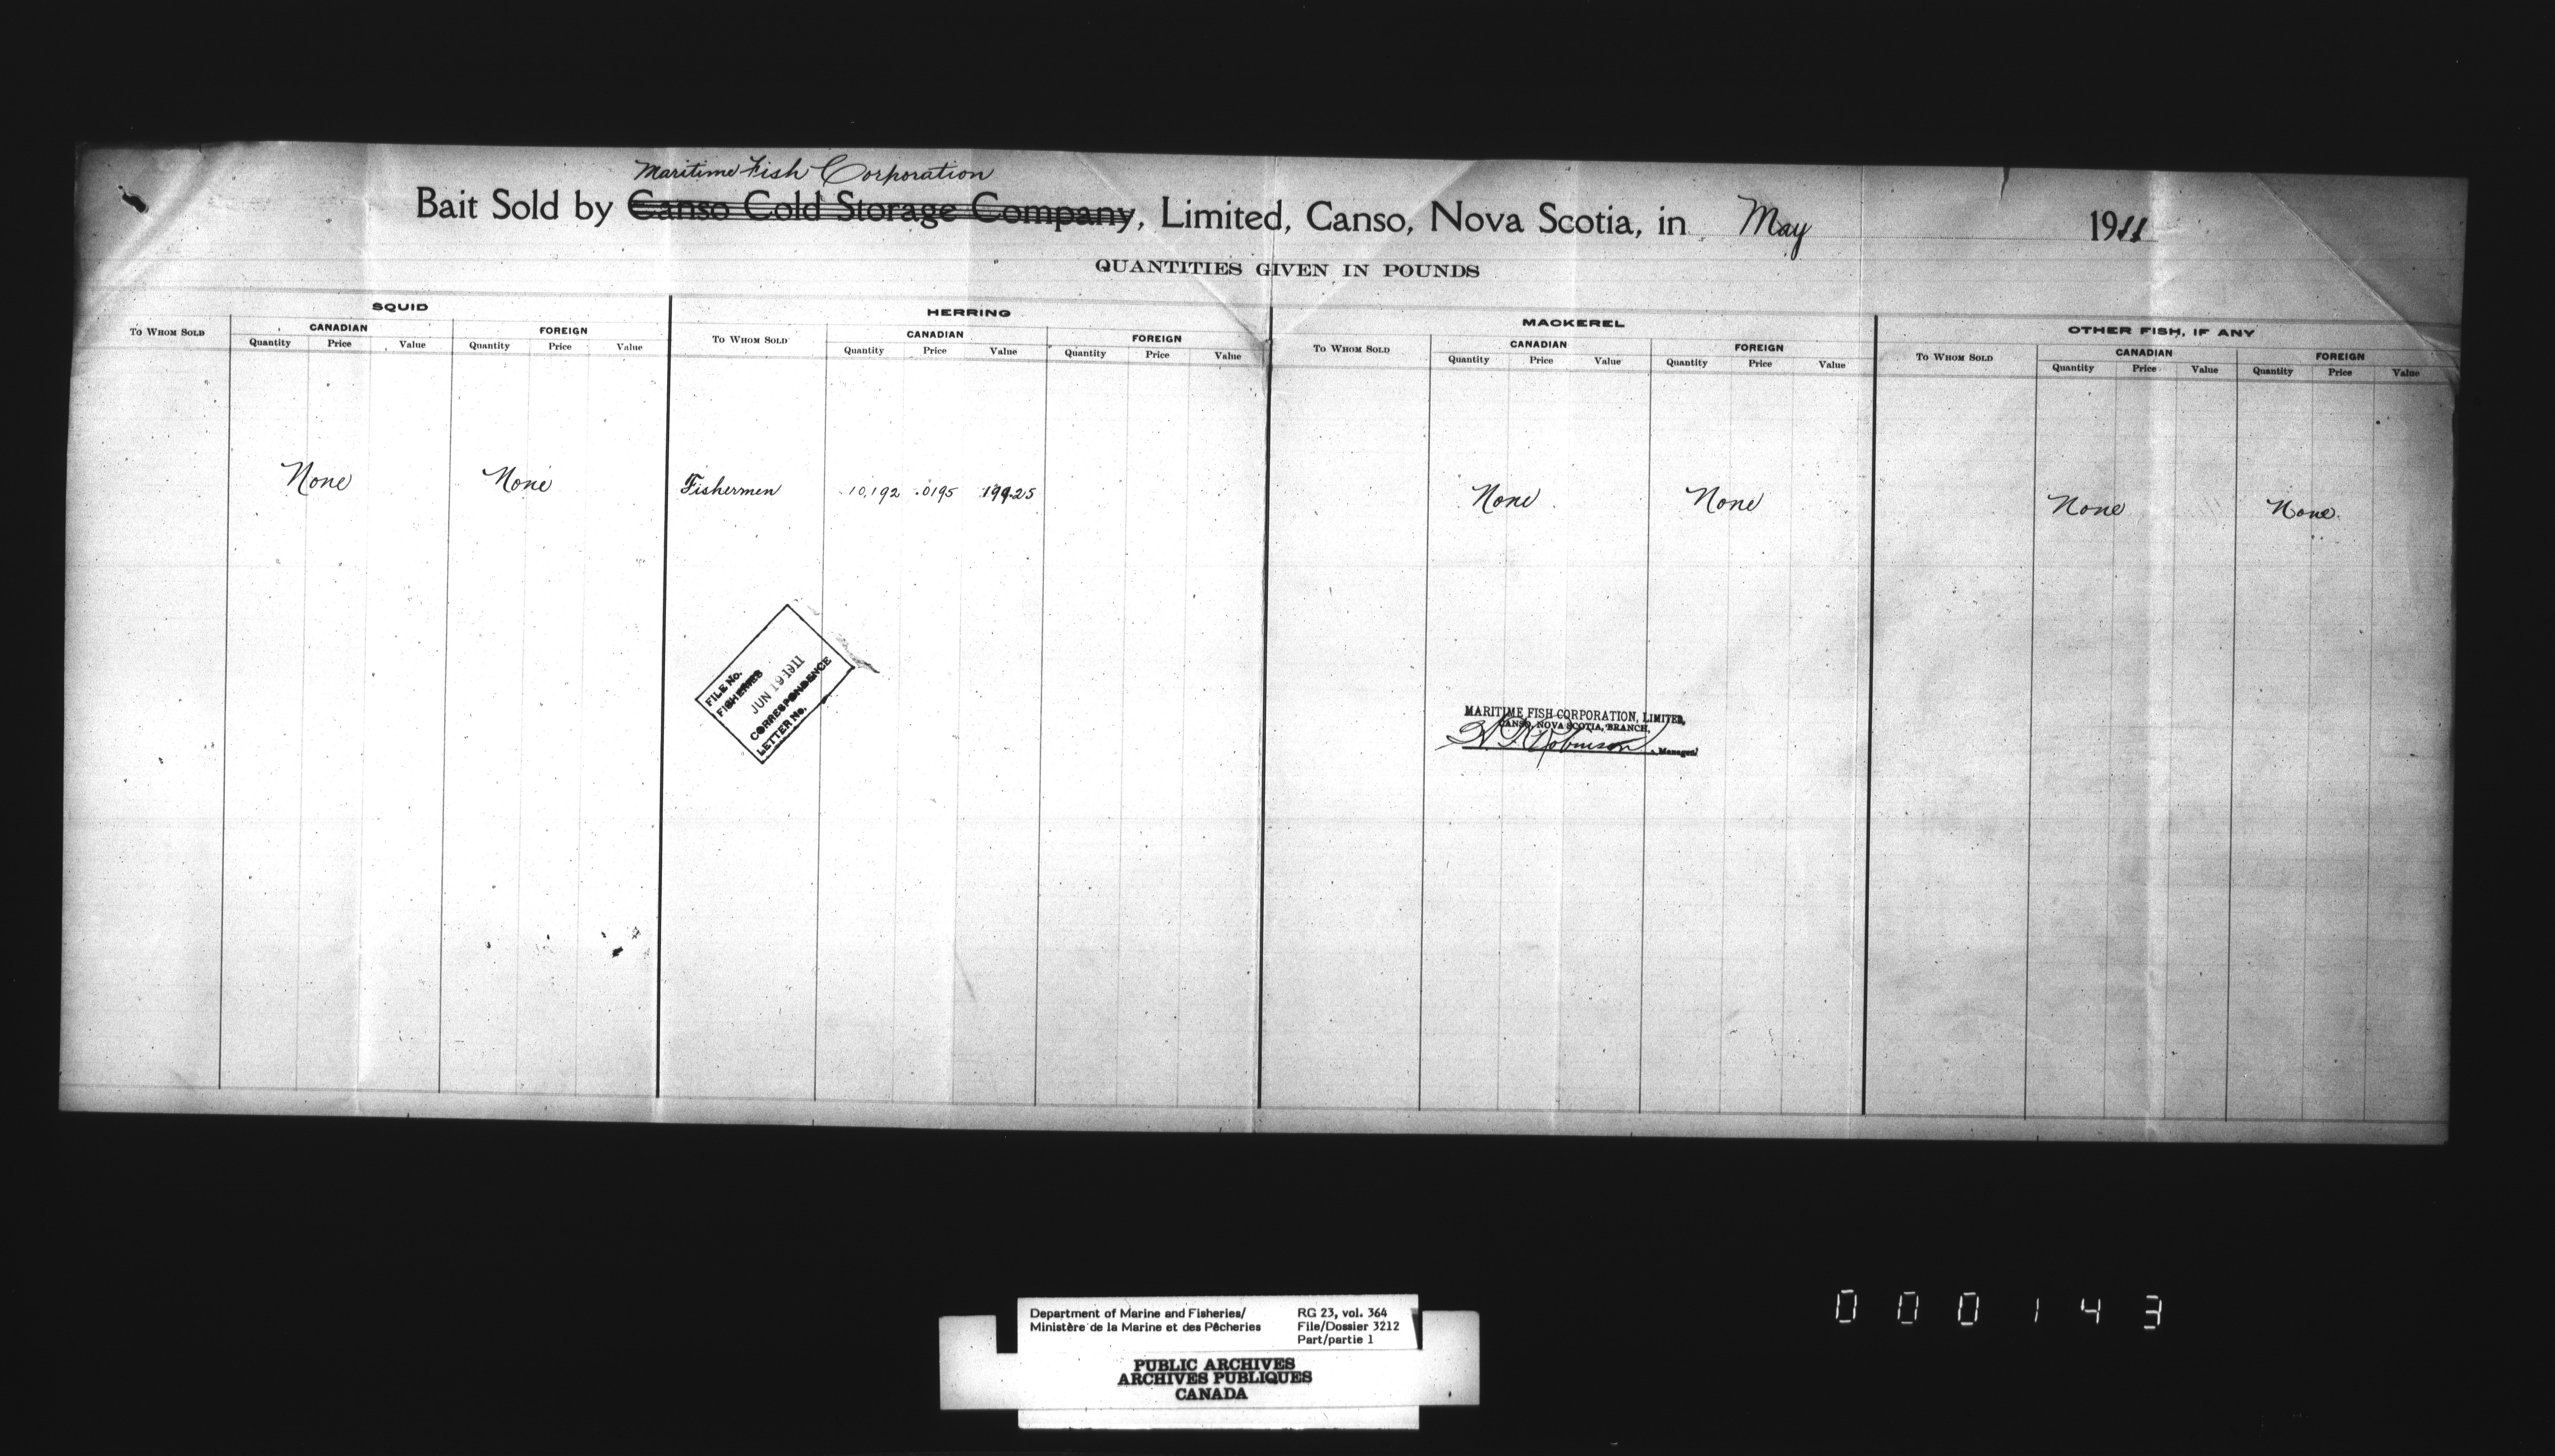 Maritime Fish Corporation
Bait Sold by Canso Cold Storage Company, Limited, Canso, Nova Scotia, in May 1911
QUANTITIES GIVEN IN POUNDS
SQUID HERRING MACKEREL OTHER FISH, IF ANY
To Whom Sold CANADIAN FOREIGN To Whom Sold CANADIAN FOREIGN To Whom Sold CANADIAN FOREIGN To Whom Sold CANADIAN FOREIGN
Quantity Price Value Quantity Price Value Quantity Price Value Quantity Price Value Quantity Price Value Quantity Price Value Quantity Price Value Quantity Price Value
None None Fishermen 10,192 .0195 199.25 None None None None
FILE No.
FISHERIES
JUN 19 1911
CORRESPONDENCE
LETTER No.
MARITIME FISH CORPORATION, LIMITED,
CANSO, NOVA SCOTIA, BRANCH,
Robinson, Manager
Department of Marine and Fisheries/
Ministère de la Marine et des Pêcheries
RG 23, vol. 364
File/Dossier 3212
Part/partie 1
PUBLIC ARCHIVES
ARCHIVES PUBLIQUES
CANADA
000143